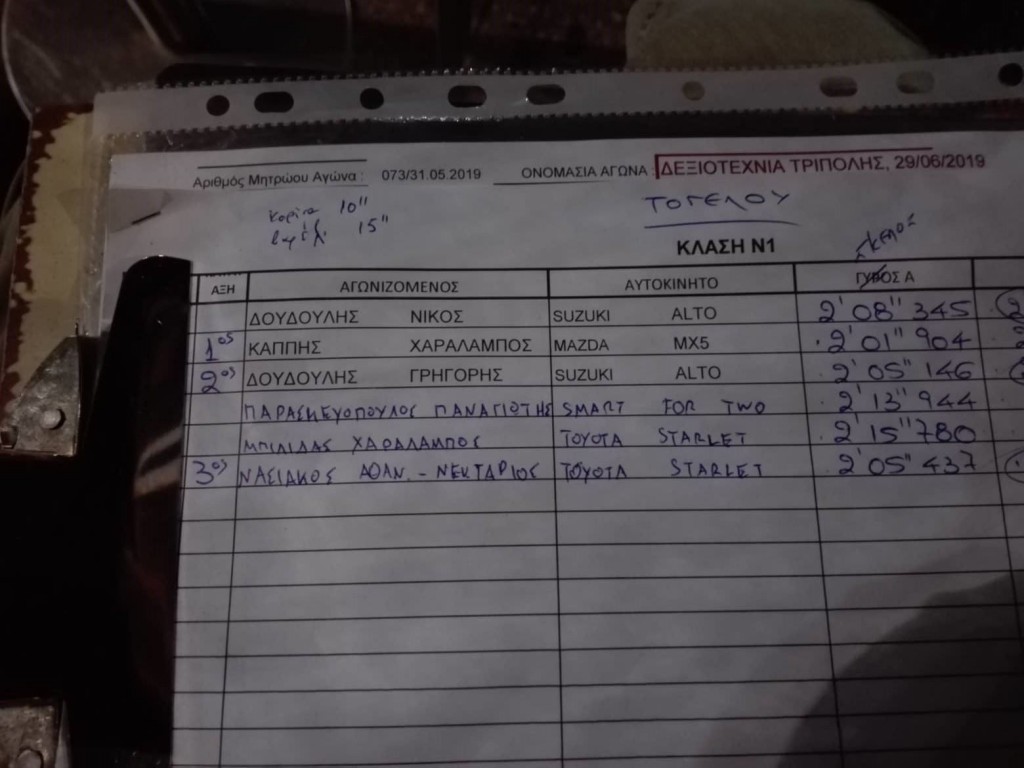 Αριθμός Μητρώου Αγώνα : 073/31.05.2019 ΟΝΟΜΑΣΙΑ ΑΓΩΝΑ : ΔΕΞΙΟΤΕΧΝΙΑ ΤΡΙΠΟΛΗΣ, 29/06/2019
10''
15''
ΚΛΑΣΗ Ν1
ΑΞΗ ΑΓΩΝΙΖΟΜΕΝΟΣ ΑΥΤΟΚΙΝΗΤΟ ΓΥΡΟΣ Α
ΔΟΥΔΟΥΛΗΣ ΝΙΚΟΣ SUZUKI ALTO 2' 08'' 345
1ος ΚΑΠΠΗΣ ΧΑΡΑΛΑΜΠΟΣ MAZDA MX5 2' 01'' 904
2ος ΔΟΥΔΟΥΛΗΣ ΓΡΗΓΟΡΗΣ SUZUKI ALTO 2' 05'' 146
ΠΑΡΑΣΚΕΥΟΠΟΥΛΟΣ ΠΑΝΑΓΙΩΤΗΣ SMART FOR TWO 2' 13'' 944
ΜΠΙΛΙΔΑΣ ΧΑΡΑΛΑΜΠΟΣ TOYOTA STARLET 2' 15'' 780
3ος ΝΑΣΙΑΚΟΣ ΑΘΑΝ. - ΝΕΚΤΑΡΙΟΣ TOYOTA STARLET 2' 05'' 437